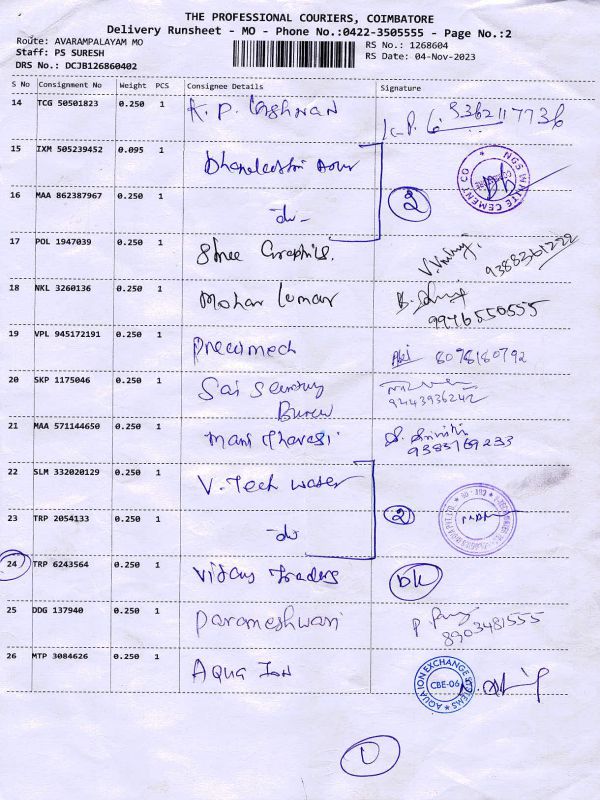 THE PROFESSIONAL COURIERS, COIMBATORE
Delivery Runsheet - MO - Phone No.:0422-3505555 - Page No.:2
Route: AVARAMPALAYAM MO
Staff: PS SURESH
DRS No.: DCJB126860402
RS No.: 1268604
RS Date: 04-Nov-2023
S No Consignment No Weight PCS Consignee Details Signature
14 TCG 50501823 0.250 1 K. P.
15 IXM 505239452 0.095 1
NGS WHITE CEMENT CO
16 MAA 862387967 0.250 1 -do- 2
17 POL 1947039 0.250 1 Shree Graphics.
18 NKL 3260136 0.250 1 Mohan Kumar
9976550555
19 VPL 945172191 0.250 1 Precimech
8078180792
20 SKP 1175046 0.250 1 Sai
9443936242
21 MAA 571144650 0.250 1 Mani
22 SLM 332020129 0.250 1 V-Tech water
23 TRP 2054133 0.250 1 -do- 2
24 TRP 6243564 0.250 1 Traders
25 DDG 137940 0.250 1 Parameshwari
8903481555
26 MTP 3084626 0.250 1 AQUA ION
AQUA ION EXCHANGE SYSTEMS
CBE-06
1